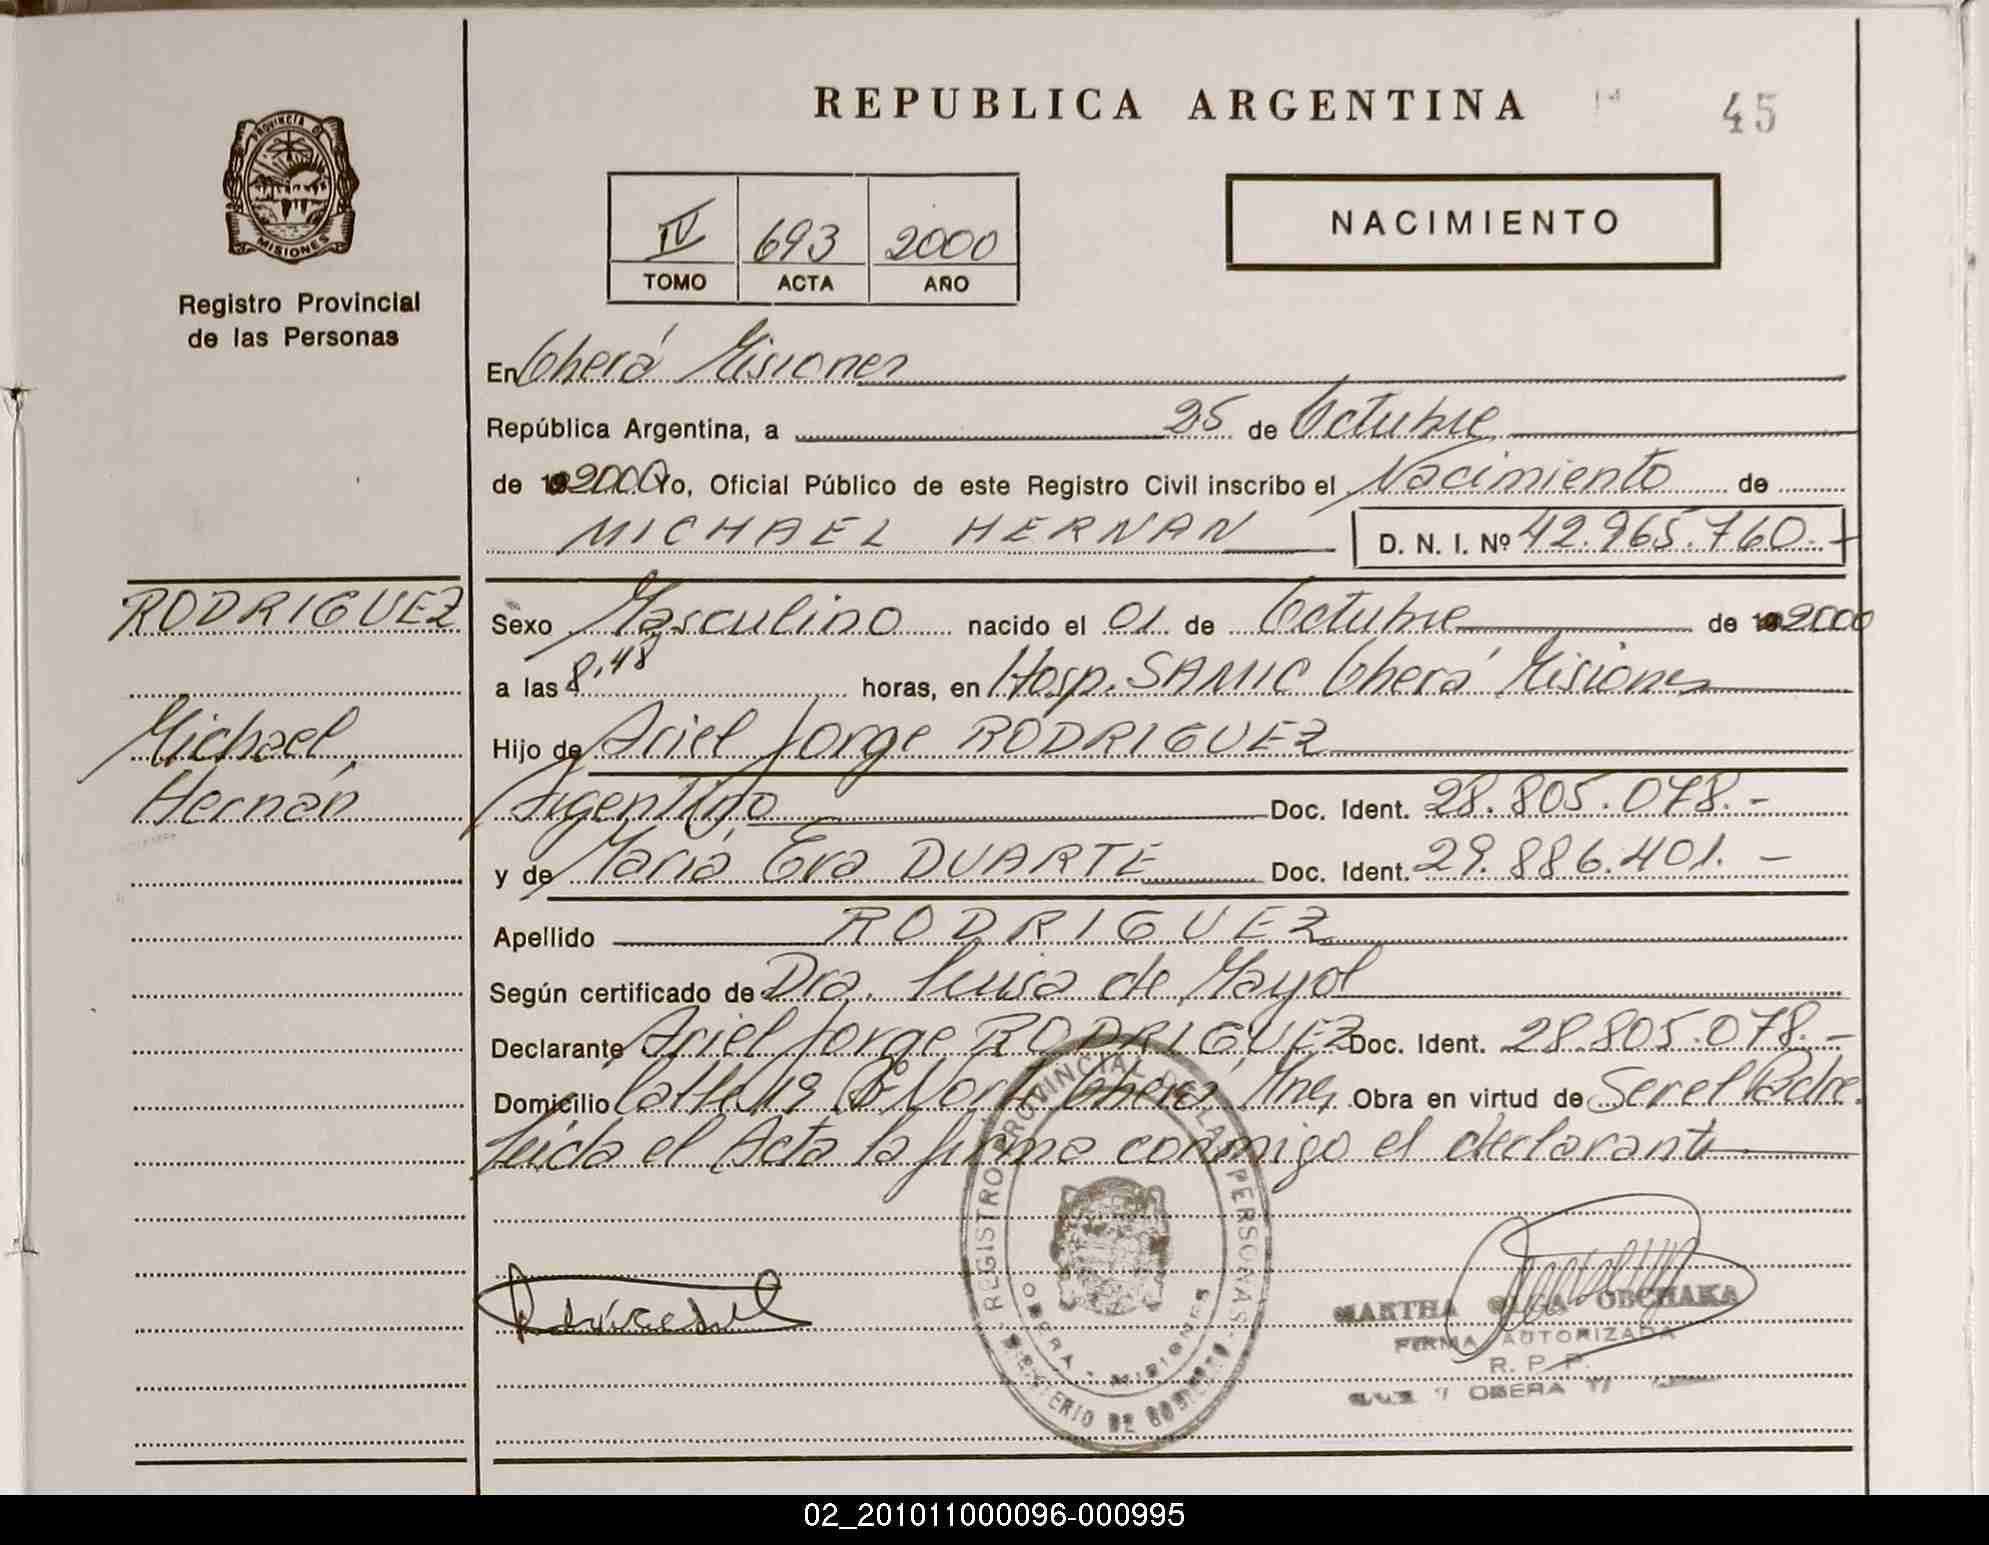 REPUBLICA ARGENTINA
45
PROVINCIA DE
MISIONES
Registro Provincial
de las Personas
IV 693 2000
TOMO ACTA AÑO
NACIMIENTO
En Oberá Misiones
República Argentina, a 25 de Octubre
de 2000 Yo, Oficial Público de este Registro Civil inscribo el Nacimiento de
MICHAEL HERNAN D. N. I. Nº 42.965.760.-
RODRIGUEZ
Michael
Hernán
Sexo Masculino nacido el 01 de Octubre de 2000
a las 8,48 horas, en Hosp. SAMIC Oberá Misiones
Hijo de Ariel Jorge RODRIGUEZ
Argentino Doc. Ident. 28.805.078.-
y de María Eva DUARTE Doc. Ident. 29.886.401. -
Apellido RODRIGUEZ
Según certificado de Dra. Luisa de Mayol
Declarante Ariel Jorge RODRIGUEZ Doc. Ident. 28.805.078.-
Domicilio Calle 19 Bº Norte Oberá Mnes Obra en virtud de Ser el Padre.
Leida el Acta la firma conmigo el declarante
REGISTRO PROVINCIAL DE LAS PERSONAS
OBERA - MISIONES
MINISTERIO DE GOBIERNO
MARTHA OLGA OBCHAKA
FIRMA AUTORIZADA
R. P. P.
OBERA
02_201011000096-000995